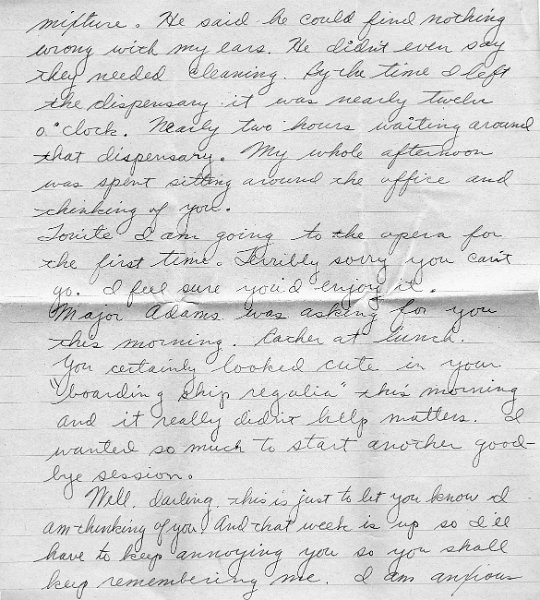 mixture. He said he could find nothing
wrong with my ears. He didn't even say
they needed cleaning. By the time I left
the dispensary it was nearly twelve
o'clock. Nearly two hours waiting around
that dispensary. My whole afternoon
was spent sitting around the office and
thinking of you.
Tonite I am going to the opera for
the first time. Terribly sorry you can't
go. I feel sure you'd enjoy it.
Major Adams was asking for you
this morning. Rather at lunch.
You certainly looked cute in your
"boarding ship regalia" this morning
and it really didn't help matters. I
wanted so much to start another good-
bye session.
Well, darling, this is just to let you know I
am thinking of you. And that week is up so I'll
have to keep annoying you so you shall
keep remembering me. I am anxious